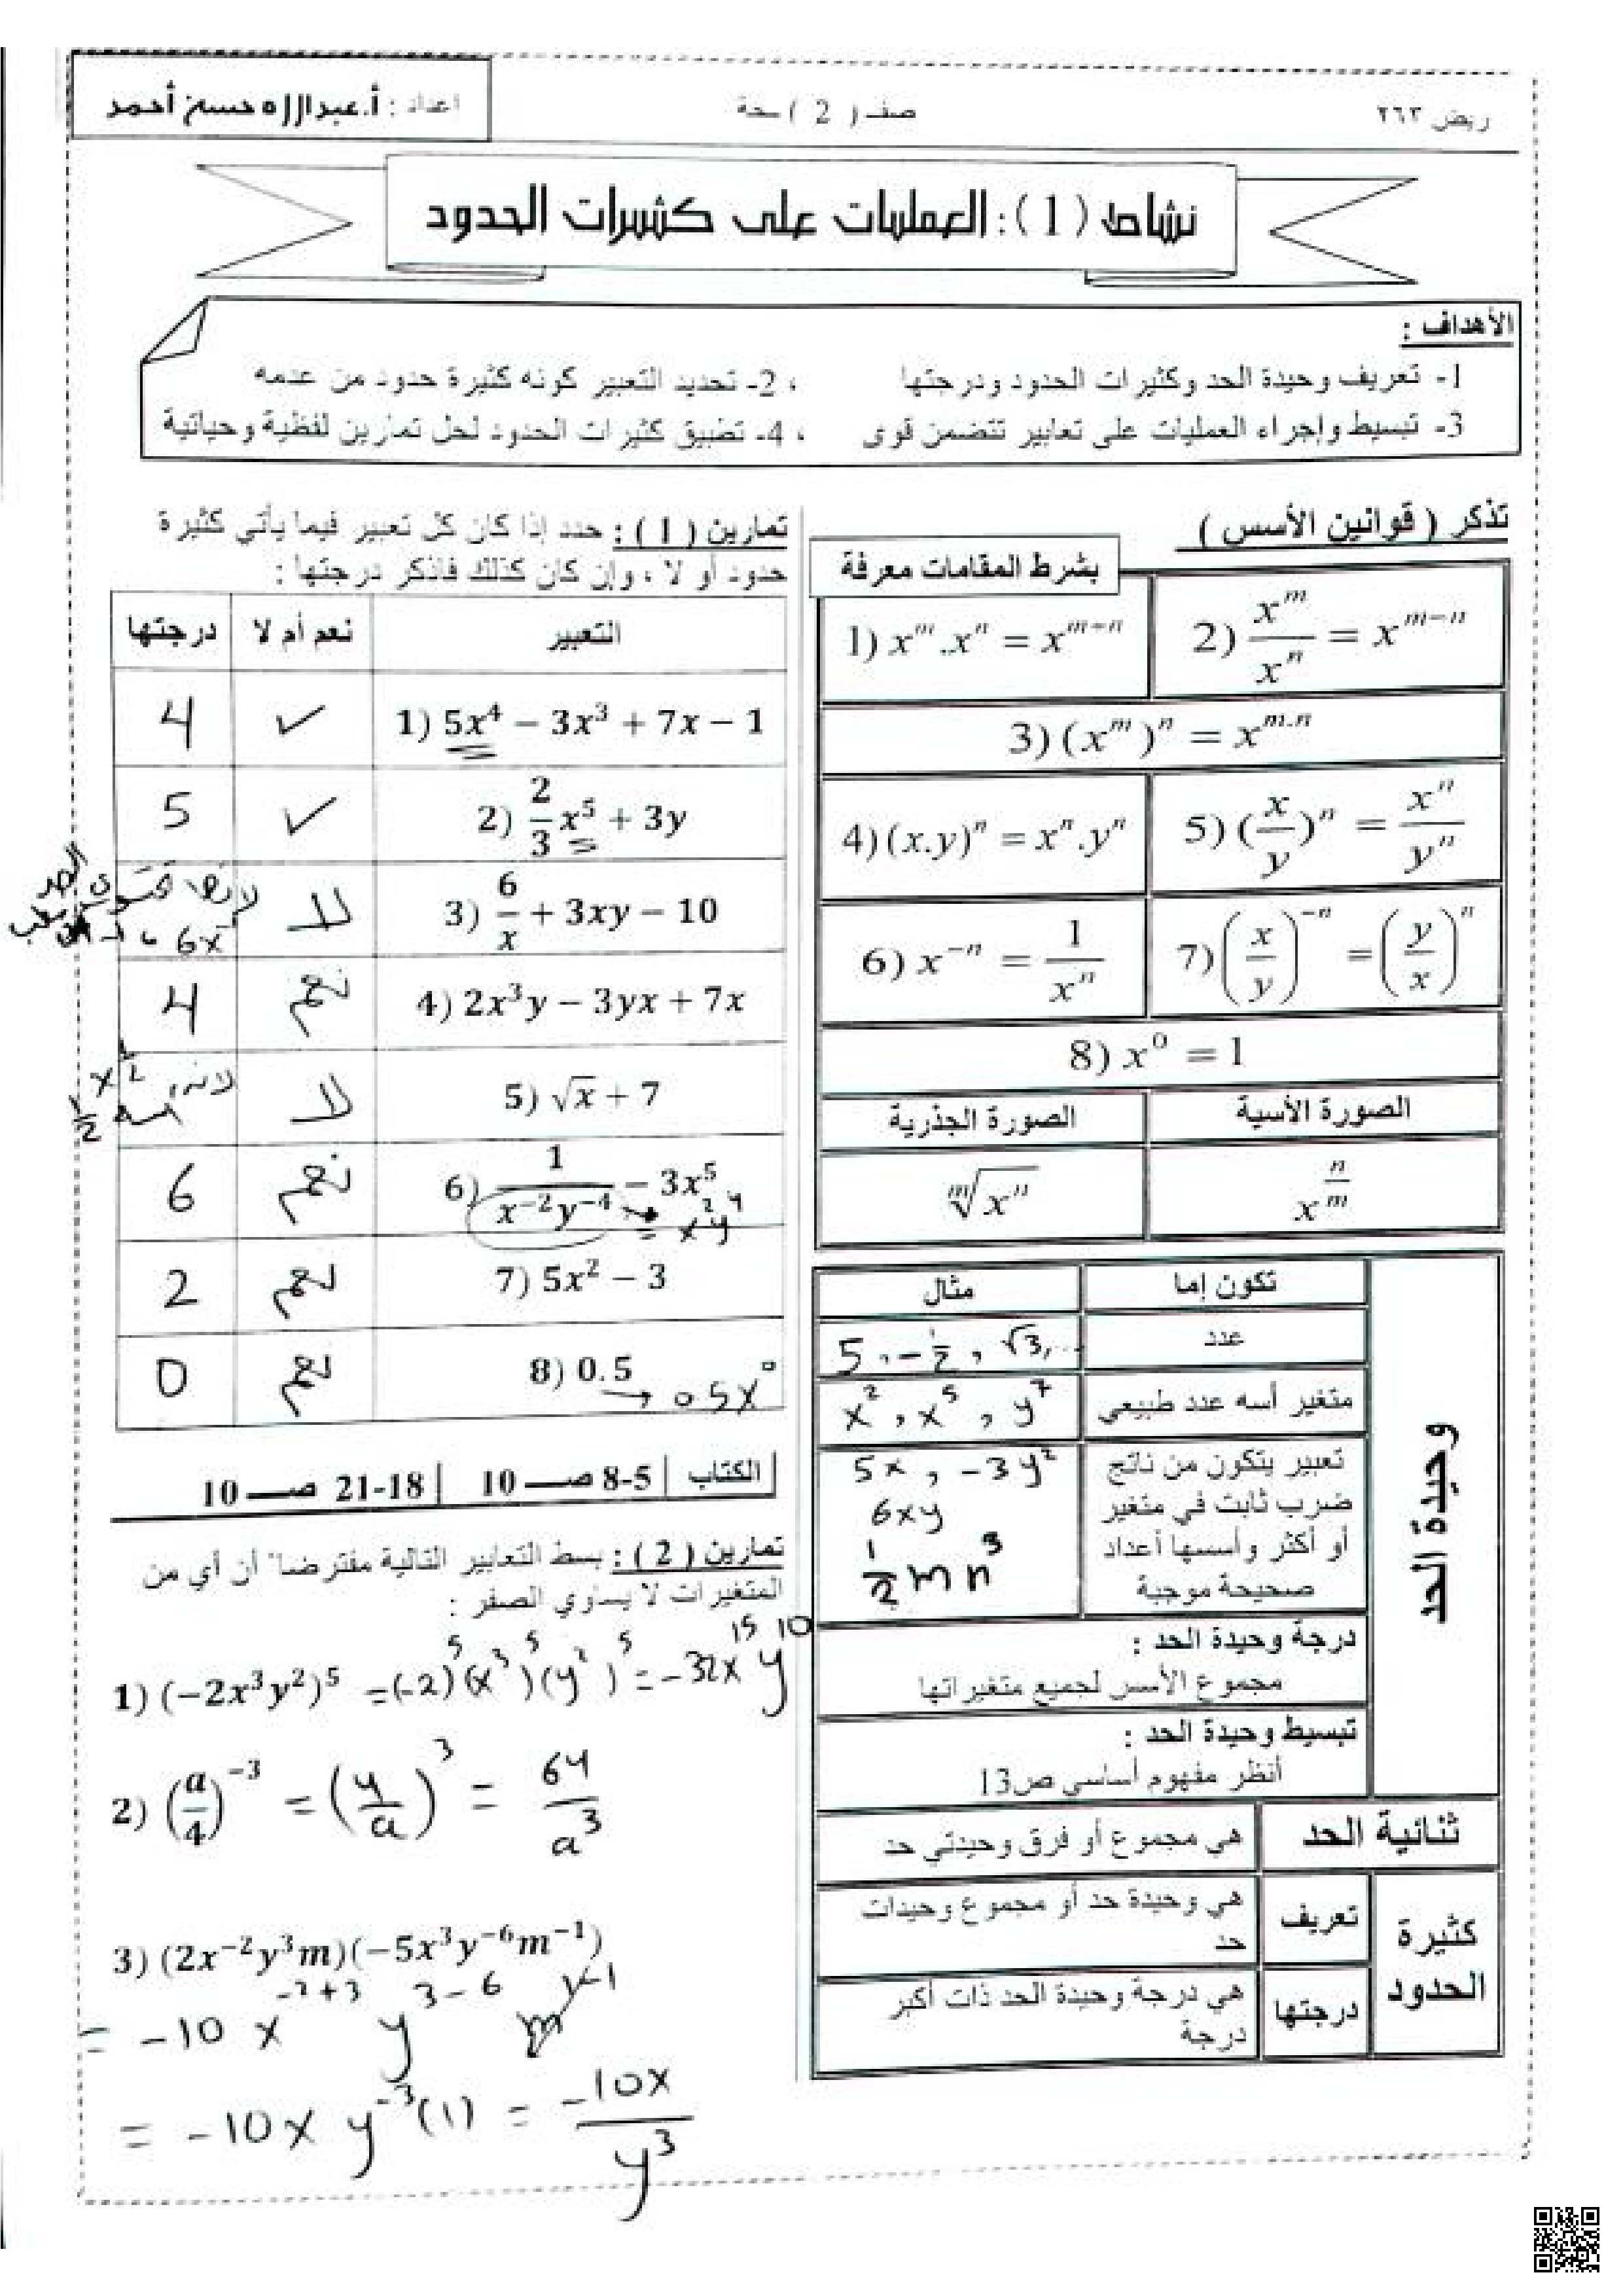 ريض ٢٦٣
صفـ ( 2 ) ـحة
اعداد : أ.عبدالإله حسن أحمد
نشاط (1) : العمليات على كثيرات الحدود
الأهداف :
1- تعريف وحيدة الحد وكثيرات الحدود ودرجتها ، 2- تحديد التعبير كونه كثيرة حدود من عدمه
3- تبسيط وإجراء العمليات على تعابير تتضمن قوى ، 4- تطبيق كثيرات الحدود لحل تمارين لفظية وحياتية
تذكر ( قوانين الأسس )
بشرط المقامات معرفة
1) x^m . x^n = x^{m+n}
2) x^m / x^n = x^{m-n}
3) (x^m)^n = x^{m.n}
4) (x.y)^n = x^n . y^n
5) (x/y)^n = x^n / y^n
6) x^{-n} = 1 / x^n
7) (x/y)^{-n} = (y/x)^n
8) x^0 = 1
الصورة الأسية
الصورة الجذرية
x^{n/m}
^m√x^n
وحيدة الحد
تكون إما
مثال
عدد
5 , -1/2 , √3, ..
متغير أسه عدد طبيعي
x^2 , x^5 , y^7
تعبير يتكون من ناتج
ضرب ثابت في متغير
أو أكثر وأسسها أعداد
صحيحة موجبة
5x , -3y^2
6xy
1/2 m n^3
درجة وحيدة الحد :
مجموع الأسس لجميع متغيراتها
تبسيط وحيدة الحد :
أنظر مفهوم أساسي ص13
ثنائية الحد
هي مجموع أو فرق وحيدتي حد
كثيرة الحدود
تعريف
هي وحيدة حد أو مجموع وحيدات
حد
درجتها
هي درجة وحيدة الحد ذات أكبر
درجة
تمارين ( 1 ) : حدد إذا كان كل تعبير فيما يأتي كثيرة
حدود أو لا ، وإن كان كذلك فاذكر درجتها :
التعبير
نعم أم لا
درجتها
1) 5x^4 − 3x^3 + 7x − 1
✓
4
2) 2/3 x^5 + 3y
✓
5
3) 6/x + 3xy − 10
لا
6x^-1
4) 2x^3y − 3yx + 7x
نعم
4
5) √x + 7
لا
لأنه x^{1/2}
أسه 1/2
6) 1/(x^{-2}y^{-4}) − 3x^5
→ x^2 y^4
نعم
6
7) 5x^2 − 3
نعم
2
8) 0.5
→ 0.5x^0
نعم
0
الكتاب | 5-8 صـ 10 | 18-21 صـ 10
تمارين ( 2 ) : بسط التعابير التالية مفترضا" أن أي من
المتغيرات لا يساوي الصفر :
1) (−2x^3y^2)^5 = (-2)^5 (x^3)^5 (y^2)^5 = -32x^15 y^10
2) (a/4)^{-3} = (4/a)^3 = 64/a^3
3) (2x^{-2}y^3m)(−5x^3y^{-6}m^{-1})
= -10 x^{-2+3} y^{3-6} m^{1-1}
= -10x y^{-3} (1) = -10x / y^3